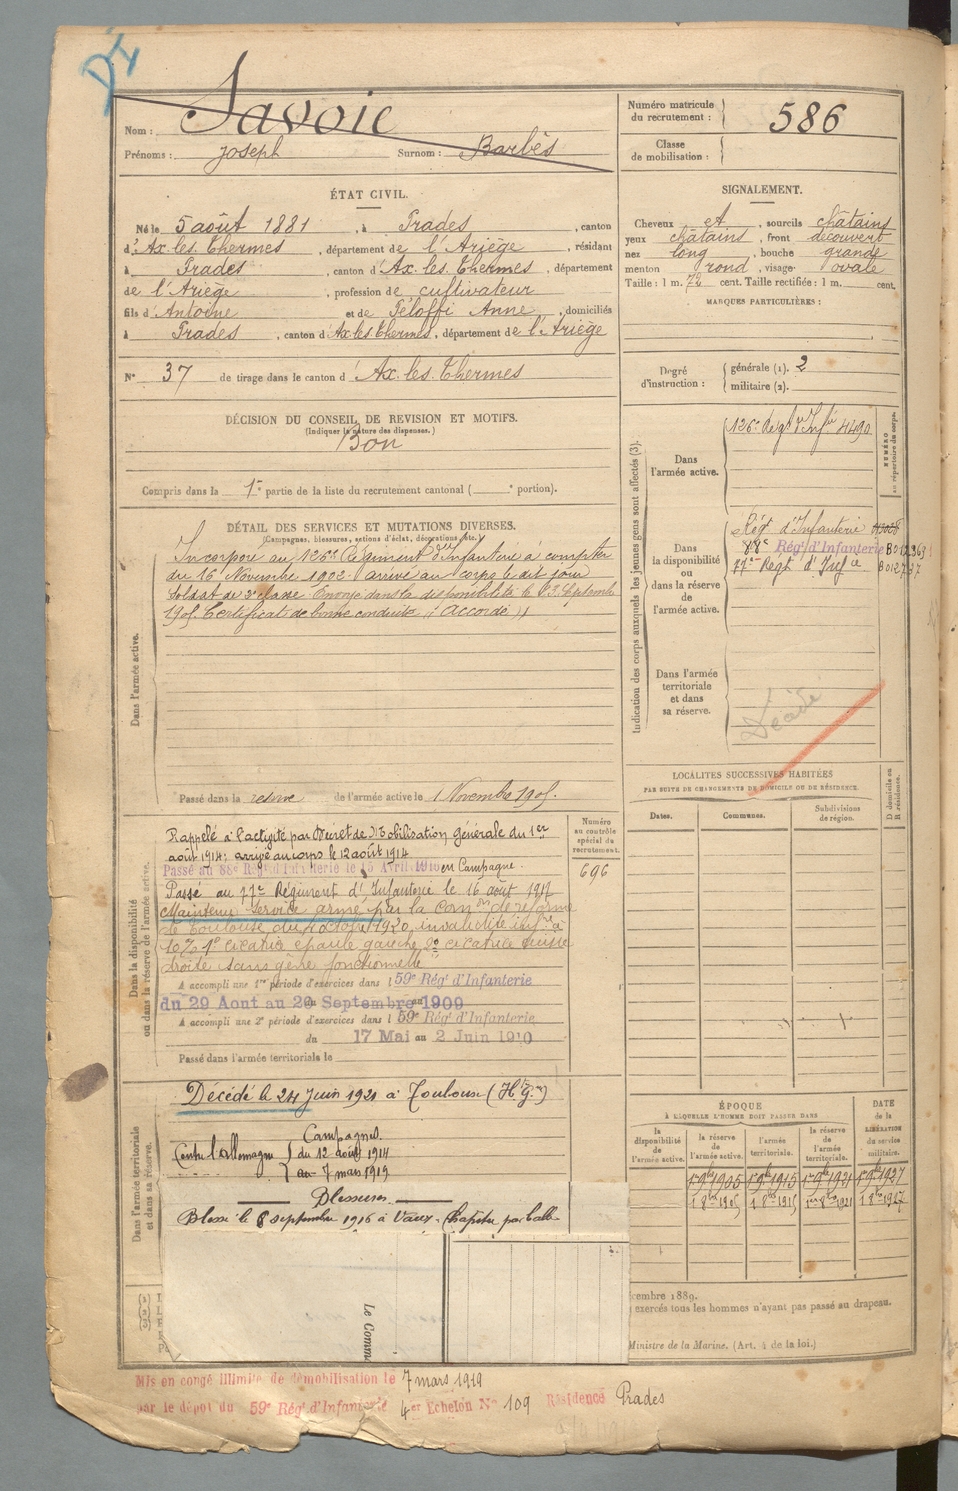 Nom : Savoie
Prénoms : Joseph Surnom : Barbès
Numéro matricule du recrutement : 586
Classe de mobilisation :
ÉTAT CIVIL.
Né le 5 août 1881, à Prades, canton
d'Ax-les-Thermes, département de l'Ariège, résidant
à Prades, canton d'Ax-les-Thermes, département
de l'Ariège, profession de cultivateur
fils d'Antoine et de Péloffi Anne, domiciliés
à Prades, canton d'Ax-les-Thermes, département de l'Ariège
N° 37 de tirage dans le canton d'Ax-les-Thermes
SIGNALEMENT.
Cheveux et, sourcils châtains
yeux châtains, front découvert
nez long, bouche grande
menton rond, visage ovale
Taille : 1 m. 72 cent. Taille rectifiée : 1 m. cent.
MARQUES PARTICULIÈRES :
Degré d'instruction : générale (1). 2
militaire (2).
DÉCISION DU CONSEIL DE REVISION ET MOTIFS.
(Indiquer la nature des dispenses.)
Bon
Compris dans la 1re partie de la liste du recrutement cantonal ( e portion).
DÉTAIL DES SERVICES ET MUTATIONS DIVERSES.
(Campagnes, blessures, actions d'éclat, décorations, etc.)
Dans l'armée active.
Incorporé au 126e Régiment d'Infanterie à compter
du 16 Novembre 1902 arrivé au corps le dit jour
Soldat de 2e classe Envoyé dans la disponibilité le Septembre
1905 Certificat de bonne conduite "Accordé"
Passé dans la réserve de l'armée active le 1 Novembre 1905.
Indication des corps auxquels les jeunes gens sont affectés (3).
NUMÉRO au répertoire du corps.
Dans l'armée active.
126e Régt d'Infie 4490
Dans la disponibilité ou dans la réserve de l'armée active.
Régt d'Infanterie
88e Régt d'Infanterie
77e Régt d'Infie
Dans l'armée territoriale et dans sa réserve.
Décédé
LOCALITÉS SUCCESSIVES HABITÉES
PAR SUITE DE CHANGEMENTS DE DOMICILE OU DE RÉSIDENCE.
Dates. Communes. Subdivisions de région. D domicile ou R résidence.
Dans la disponibilité ou dans la réserve de l'armée active.
Numéro au contrôle spécial du recrutement.
696
Rappelé à l'activité par Décret de Mobilisation générale du 1er
août 1914; arrivé au corps le 12 août 1914
Passé au 88e Régt d'Infanterie le 15 Avril 1915 en Campagne.
Passé au Régiment d'Infanterie le 16 août 1917
Maintenu Service armé par la Comon de réforme
de Toulouse du 4 octobre 1920, invalidité infre à
10% 1° cicatrice épaule gauche, 2° cicatrice cuisse
droite sans gêne fonctionnelle
A accompli une 1re période d'exercices dans l 59e Régt d'Infanterie
du 29 Aout au 20 Septembre 1909
A accompli une 2e période d'exercices dans l 59e Régt d'Infanterie
du 17 Mai au 2 Juin 1910
Passé dans l'armée territoriale le
Dans l'armée territoriale et dans sa réserve.
Décédé le 24 Juin 1921 à Toulouse
Campagnes.
Contre l'Allemagne du 12 août 1914
au 7 mars 1919
Blessures.
Blessé le 8 septembre 1916 à Vaux-Chapitre par balle
ÉPOQUE
À LAQUELLE L'HOMME DOIT PASSER DANS
DATE de la LIBÉRATION du service militaire.
la disponibilité de l'armée active. la réserve de l'armée active. l'armée territoriale. la réserve de l'armée territoriale.
1er 9bre 1905 1er 9bre 1915 1er 9bre 1921 1er 9bre 1927
1 8bre 1905 1 8bre 1915 1er 8bre 1921 1 8bre 1927
Le Comm
cembre 1889.
exercés tous les hommes n'ayant pas passé au drapeau.
Ministre de la Marine. (Art. 4 de la loi.)
Mis en congé illimité de démobilisation le 7 mars 1919
par le dépôt du 59e Régt d'Infanterie 4er Echelon No 109 Résidence Prades